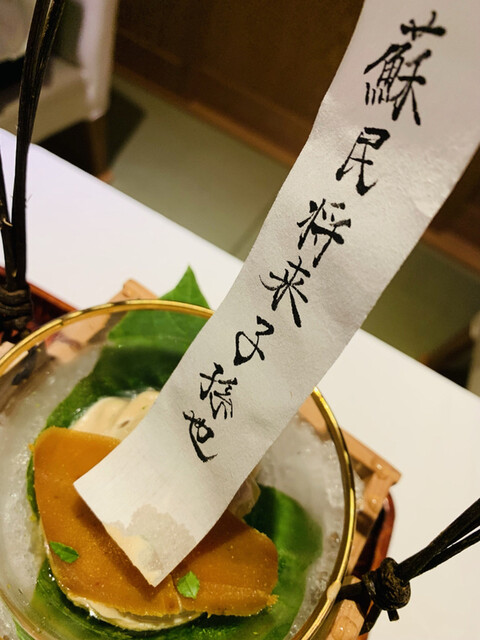 蘇民将来子孫也